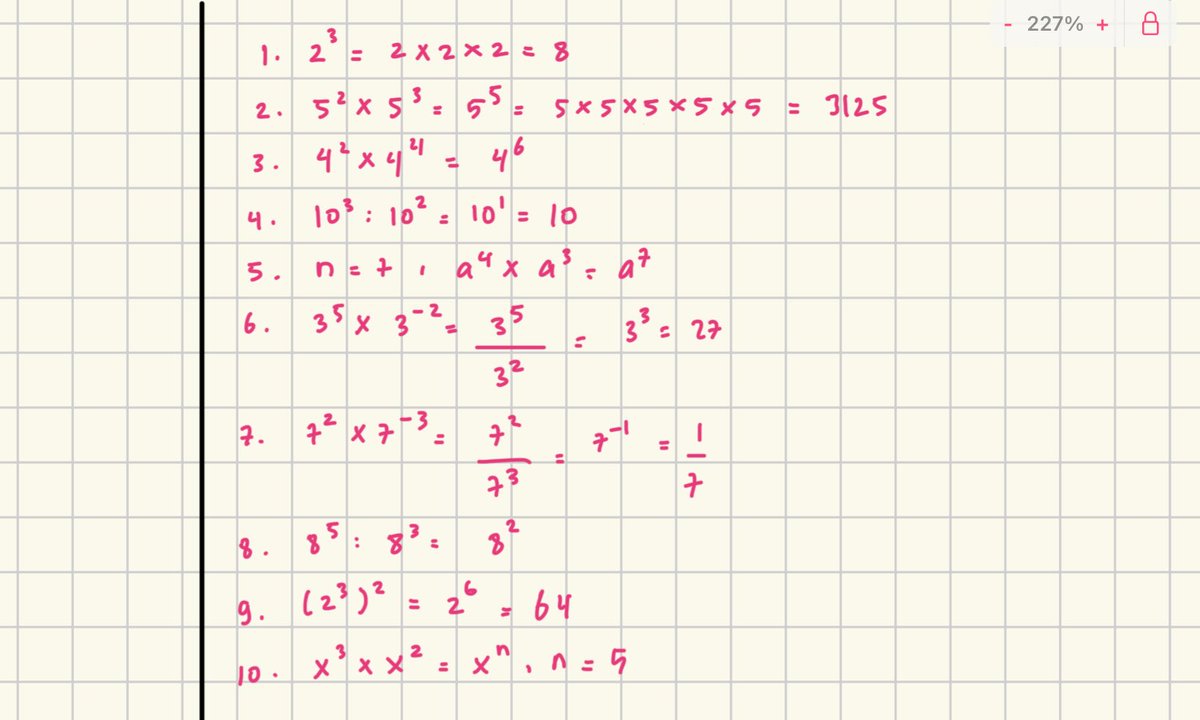 - 227% +
1. 2³ = 2 × 2 × 2 = 8
2. 5² × 5³ = 5⁵ = 5 × 5 × 5 × 5 × 5 = 3125
3. 4² × 4⁴ = 4⁶
4. 10³ : 10² = 10¹ = 10
5. n = 7 , a⁴ × a³ = a⁷
6. 3⁵ × 3⁻² = 3⁵/3² = 3³ = 27
7. 7² × 7⁻³ = 7²/7³ = 7⁻¹ = 1/7
8. 8⁵ : 8³ = 8²
9. (2³)² = 2⁶ = 64
10. x³ × x² = xⁿ , n = 5